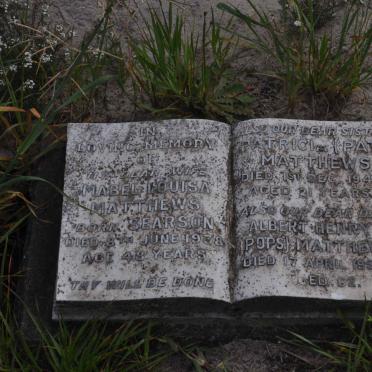 IN
LOVING MEMORY
OF
WIFE
MABEL LOUISA
MATTHEWS
BORN SEARSON
DIED 8TH JUNE
AGED YEARS
THY WILL BE DONE
ALSO OUR DEAR SISTER
PATRICIA (PAT)
MATTHEWS
DIED DEC.
AGED 21 YEARS
ALSO OUR DEAR
ALBERT HENRY
(POPS) MATTHEWS
DIED 17 APRIL